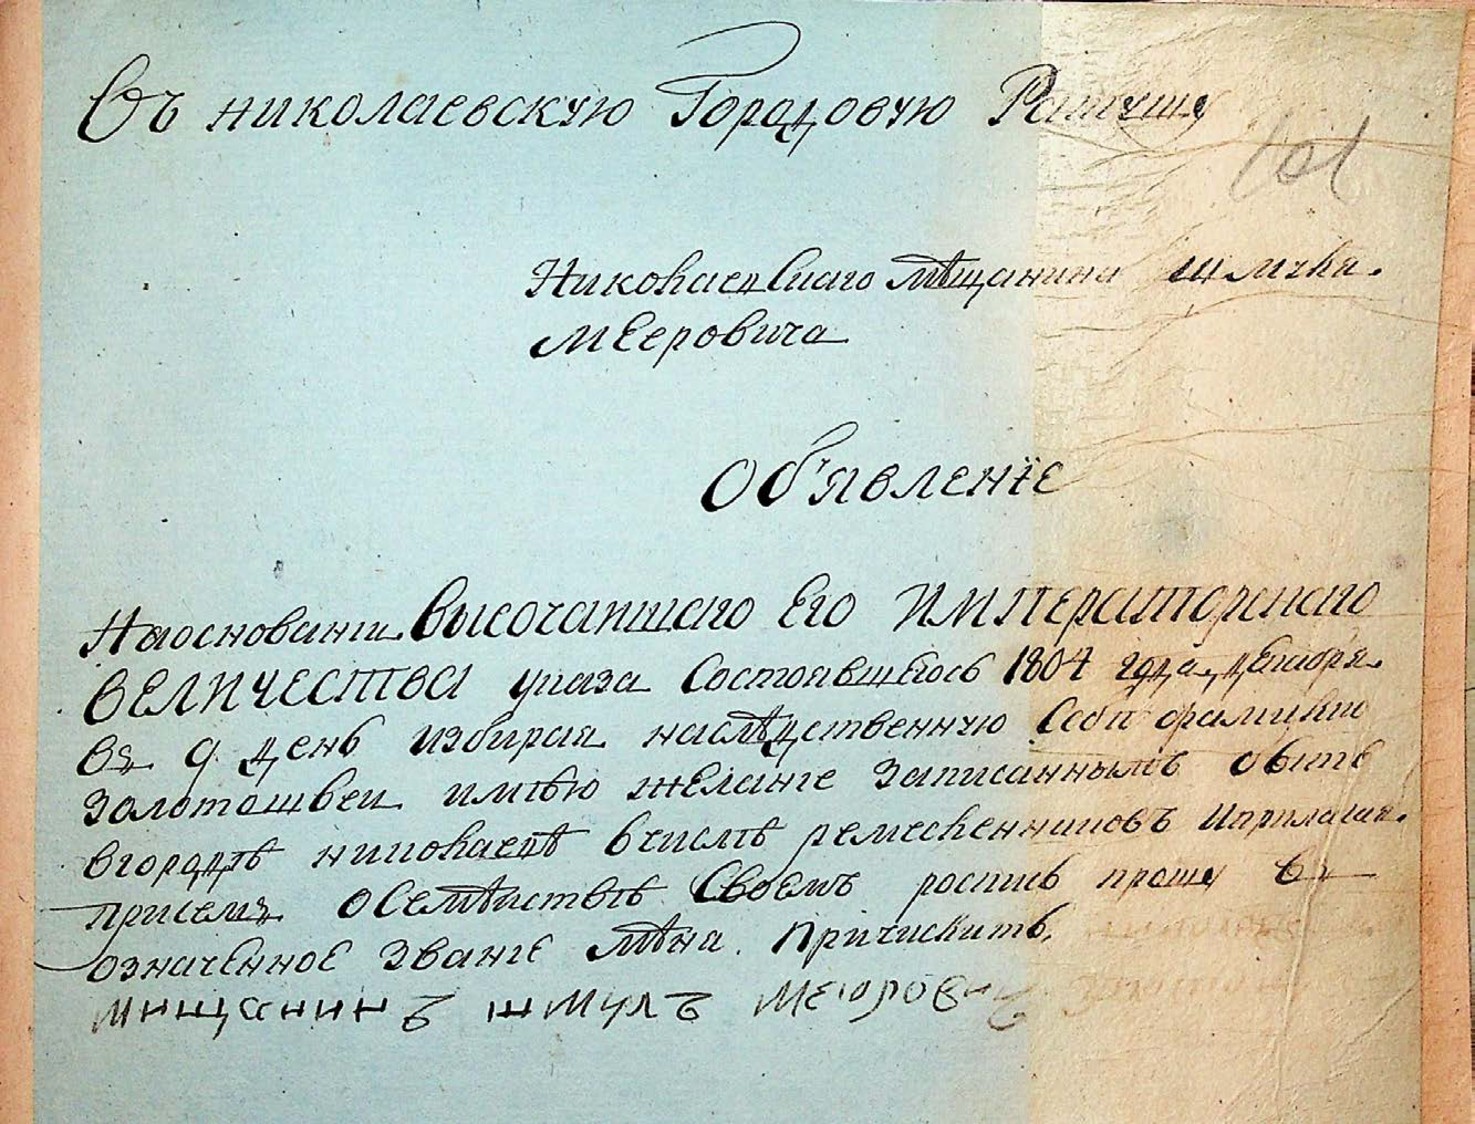 Въ николаевскую Городовую Ратушу
101
Николаевскаго мѣщанина Шмуля
Мееровича
Об'явленїе
На основании Высочайшаго Его Императорскаго
Величества указа Состоявшегось 1804 года декабря
въ 9 день избирая наслѣдственную Себѣ фамилию
Золотошвеи имѣю желание записаннымъ быть
вгородѣ николаевѣ вчислѣ ремесленниковъ Иприлагая
присемъ оСемѣиствѣ Своемъ роспись прошу въ
означенное Звание мѣня Причислить,
Мищанинъ шмулъ Меюровичъ